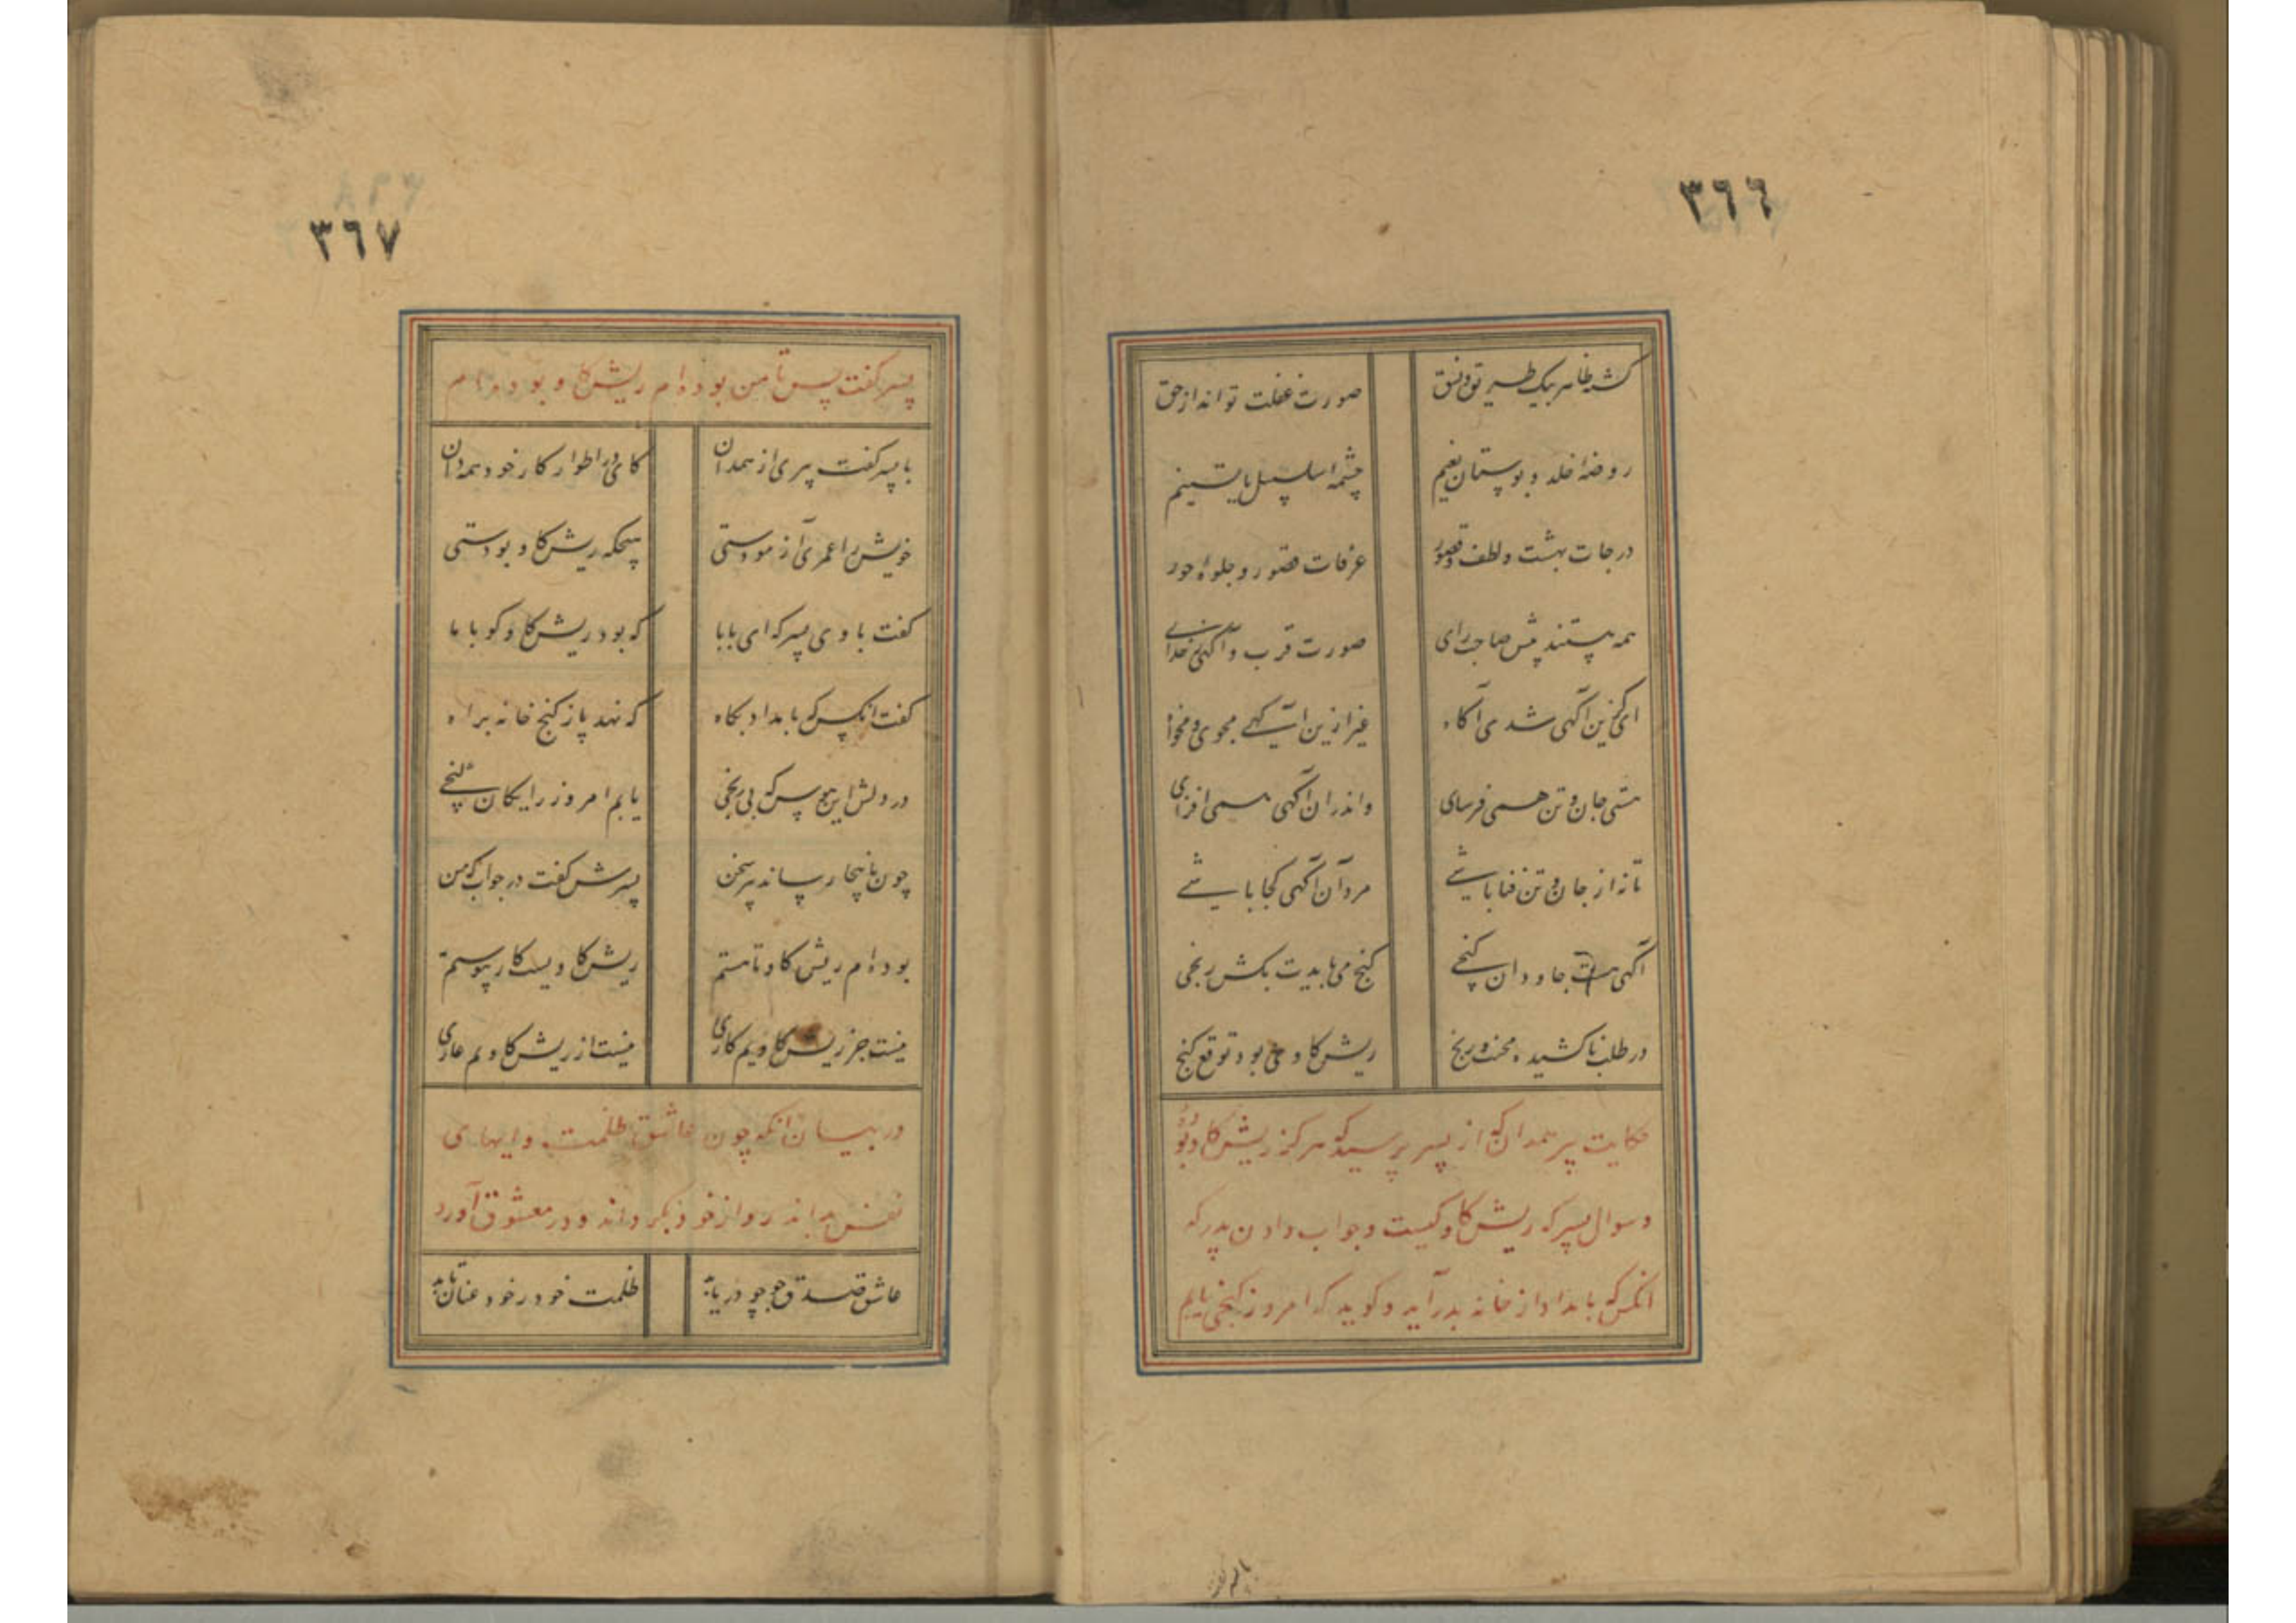 ٣٦٦
کشد ظاهر بیک طریق و نسق صورت غفلت تواند از حق
روضهٔ خلد و بوستان نعیم چشمهٔ سلسبیل یا تسنیم
درجات بهشت و لطف و قصور غرفات قصور و جلوهٔ حور
همه هستند پیش صاحب رای صورت قرب و آگهی ز خدای
ای کزین آگهی شدی آگاه غیر ازین آگهی مجوی و مخواه
هستی جان و تن همی فرسای واندران آگهی همی افزای
تا نه از جان و تن فنا باشی مرد آن آگهی کجا باشی
آگهی هست جاودان گنجی گنج می بایدت بکش رنجی
در طلب ناکشیده محنت و رنج ریش گاوی بود توقع گنج
حکایت پیر همدان که از پسر پرسید که هرگز ریش گاو بوده
و سوال پسر که ریش گاو کیست و جواب دادن پدر که
آنکس که بامداد از خانه بدر آید و گوید که امروز گنجی یابم
٣٦٧
پسر گفت پس تا من بوده‌ام ریش گاو بوده‌ام
با پسر گفت پیری از همدان کای در اطوار کار خود همه دان
خویش را عمری آزمودستی هیچگه ریش گاو بودستی
گفت با وی پسر که ای بابا که بود ریش گاو گو با ما
گفت آنکس که بامداد پگاه که نهد پا ز کنج خانه براه
در دلش این هوس که بی رنجی یابم امروز رایگان گنجی
چون باینجا رساند پیر سخن پسرش گفت در جواب که من
بوده‌ام ریش گاو تا هستم ریش گاویست کار پیوستم
نیست جز ریش گاویم کاری نیست از ریش گاویم عاری
در بیان آنکه چون عاشق ظلمت و
نفس بداند رو از خود بگرداند و در معشوق آورد
عاشق صدق جو چو دریابد ظلمت خود ز خود عنان تابد